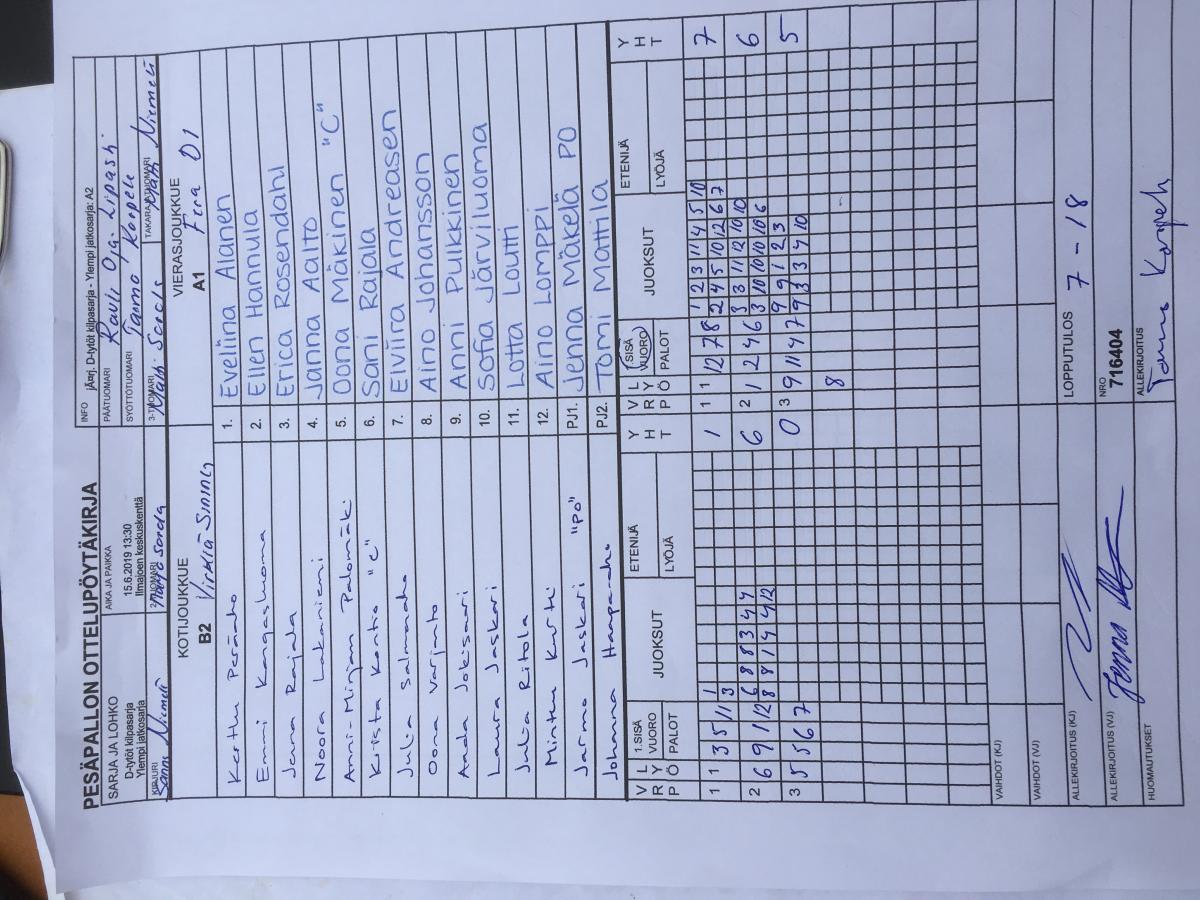 PESÄPALLON OTTELUPÖYTÄKIRJA
SARJA JA LOHKO
D-tytöt kilpasarja
Ylempi jatkosarja
AIKA JA PAIKKA
15.6.2019 13:30
Ilmajoen keskuskenttä
INFO jAarj. D-tytöt kilpasarja - Ylempi jatkosarja: A2
PÄÄTUOMARI Rauli Oja-Lipasti
SYÖTTÖTUOMARI Tarmo Koopele
KIRJURI Sanni Niemelä
2-TUOMARI
3-TUOMARI Matti
TAKARAJATUOMARI Matti Niemelä
KOTIJOUKKUE
B2 Virkiä-Sininen
VIERASJOUKKUE
A1 Fera D1
Kerttu Perääho 1. Eveliina Alanen
Emmi Kangasluoma 2. Ellen Hannula
Jenna Rajala 3. Erica Rosendahl
Noora Lakaniemi 4. Janna Aalto
Anni-Mirjam Palomäki 5. Oona Mäkinen "C"
Krista Kontio "C" 6. Sani Rajala
Julia Salmenaho 7. Elviira Andreasen
Oona Varjanto 8. Aino Johansson
Aada Jokisaari 9. Anni Pulkkinen
Laura Jaskari 10. Sofia Järviluoma
Julia Ritola 11. Lotta Loutti
Minttu Kurtti 12. Aino Lomppi
Jarmo Jaskari "PO" PJ1. Jenna Mäkelä PO
Johanna Haaparaho PJ2. Tomi Mattila
V R P L Y Ö 1.SISÄ VUORO PALOT JUOKSUT ETENIJÄ LYÖJÄ Y H T V R P L Y Ö 1.SISÄ VUORO PALOT JUOKSUT ETENIJÄ LYÖJÄ Y H T
1 1 3 5 11 1 1 1 1 12 7 8 1 2 3 11 4 5 10 7
3 2 4 5 10 12 6 7
2 6 9 11 12 6 8 8 3 4 4 6 2 1 2 4 6 3 3 11 12 10 10 6
8 8 1 4 4 12 3 10 10 10 10 6
3 5 5 6 7 0 3 9 11 4 7 9 9 1 2 3 5
8 9 3 3 4 10
VAIHDOT (KJ)
VAIHDOT (VJ)
ALLEKIRJOITUS (KJ)
LOPPUTULOS 7 - 18
ALLEKIRJOITUS (VJ) Jenna
NRO
716404
HUOMAUTUKSET
ALLEKIRJOITUS